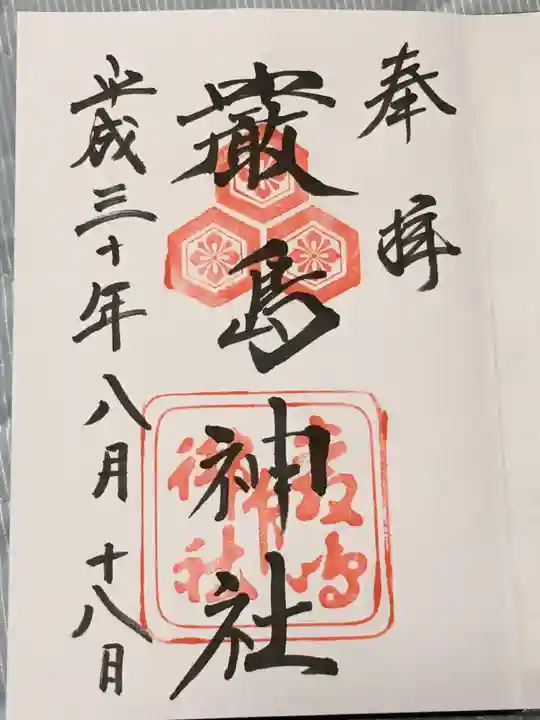 奉拝
嚴島神社
平成三十年八月十八日